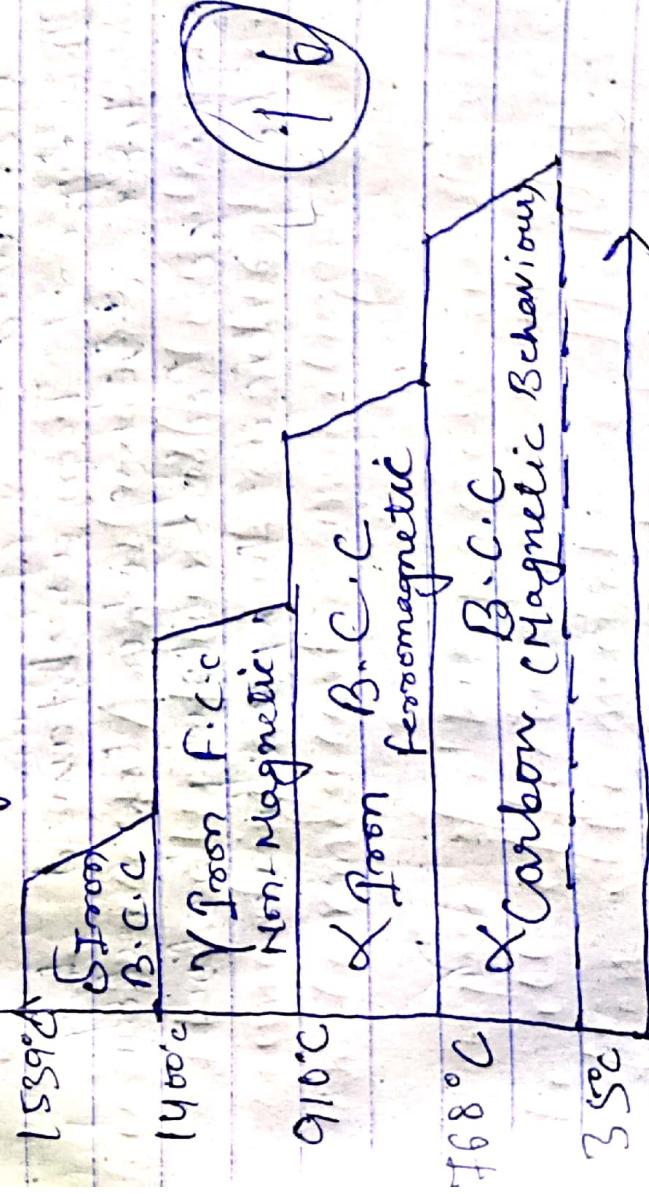 1539°C
δ Iron
B.C.C
1400°C
γ Iron F.C.C
Non-Magnetic
910°C
α Iron B.C.C
ferromagnetic
768°C
α Carbon B.C.C
(Magnetic Behaviour)
35°C